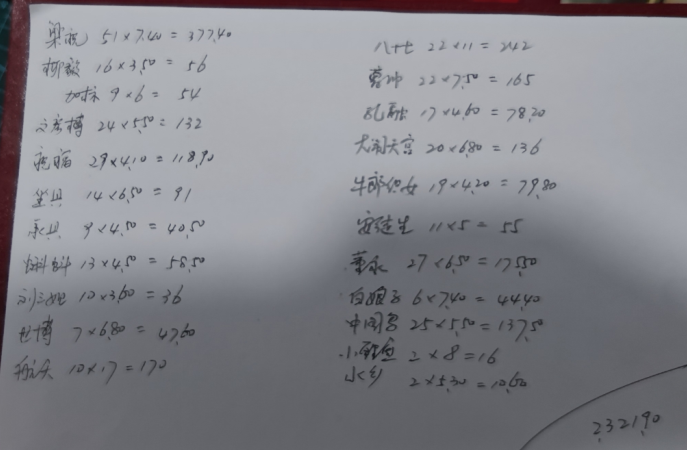 梁祝 51×7.40=377.40
柳毅 16×3.50=56
加标 9×6=54
文彦博 24×5.50=132
祝福 29×4.10=118.90
坐具 14×6.50=91
承具 9×4.50=40.50
材料 13×4.50=58.50
刘三姐 10×3.60=36
世博 7×6.80=47.60
10×17=170
八十七 22×11=242
曹冲 22×7.50=165
孔融 17×4.60=78.20
大闹天宫 20×6.80=136
牛郎织女 19×4.20=79.80
安徒生 11×5=55
董永 27×6.50=175.50
白娘子 6×7.40=44.40
中国 25×5.50=137.50
小鲤鱼 2×8=16
水乡 2×5.30=10.60
2,321.90